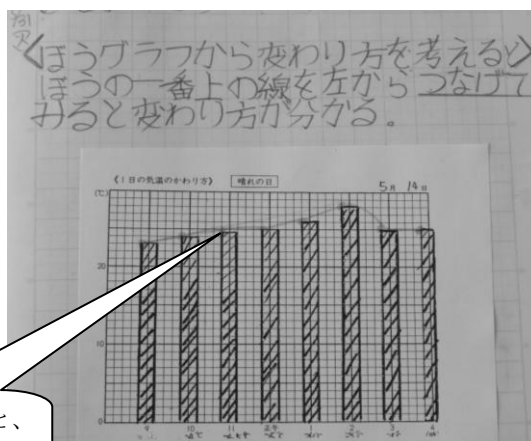 〈ぼうグラフから変わり方を考えると〉
ぼうの一番上の線を左からつなげて
みると変わり方が分かる。
《1日の気温のかわり方》 晴れの日 5月 14日
(℃)
20
10
0
9 10 11 正午 1 2 3 4